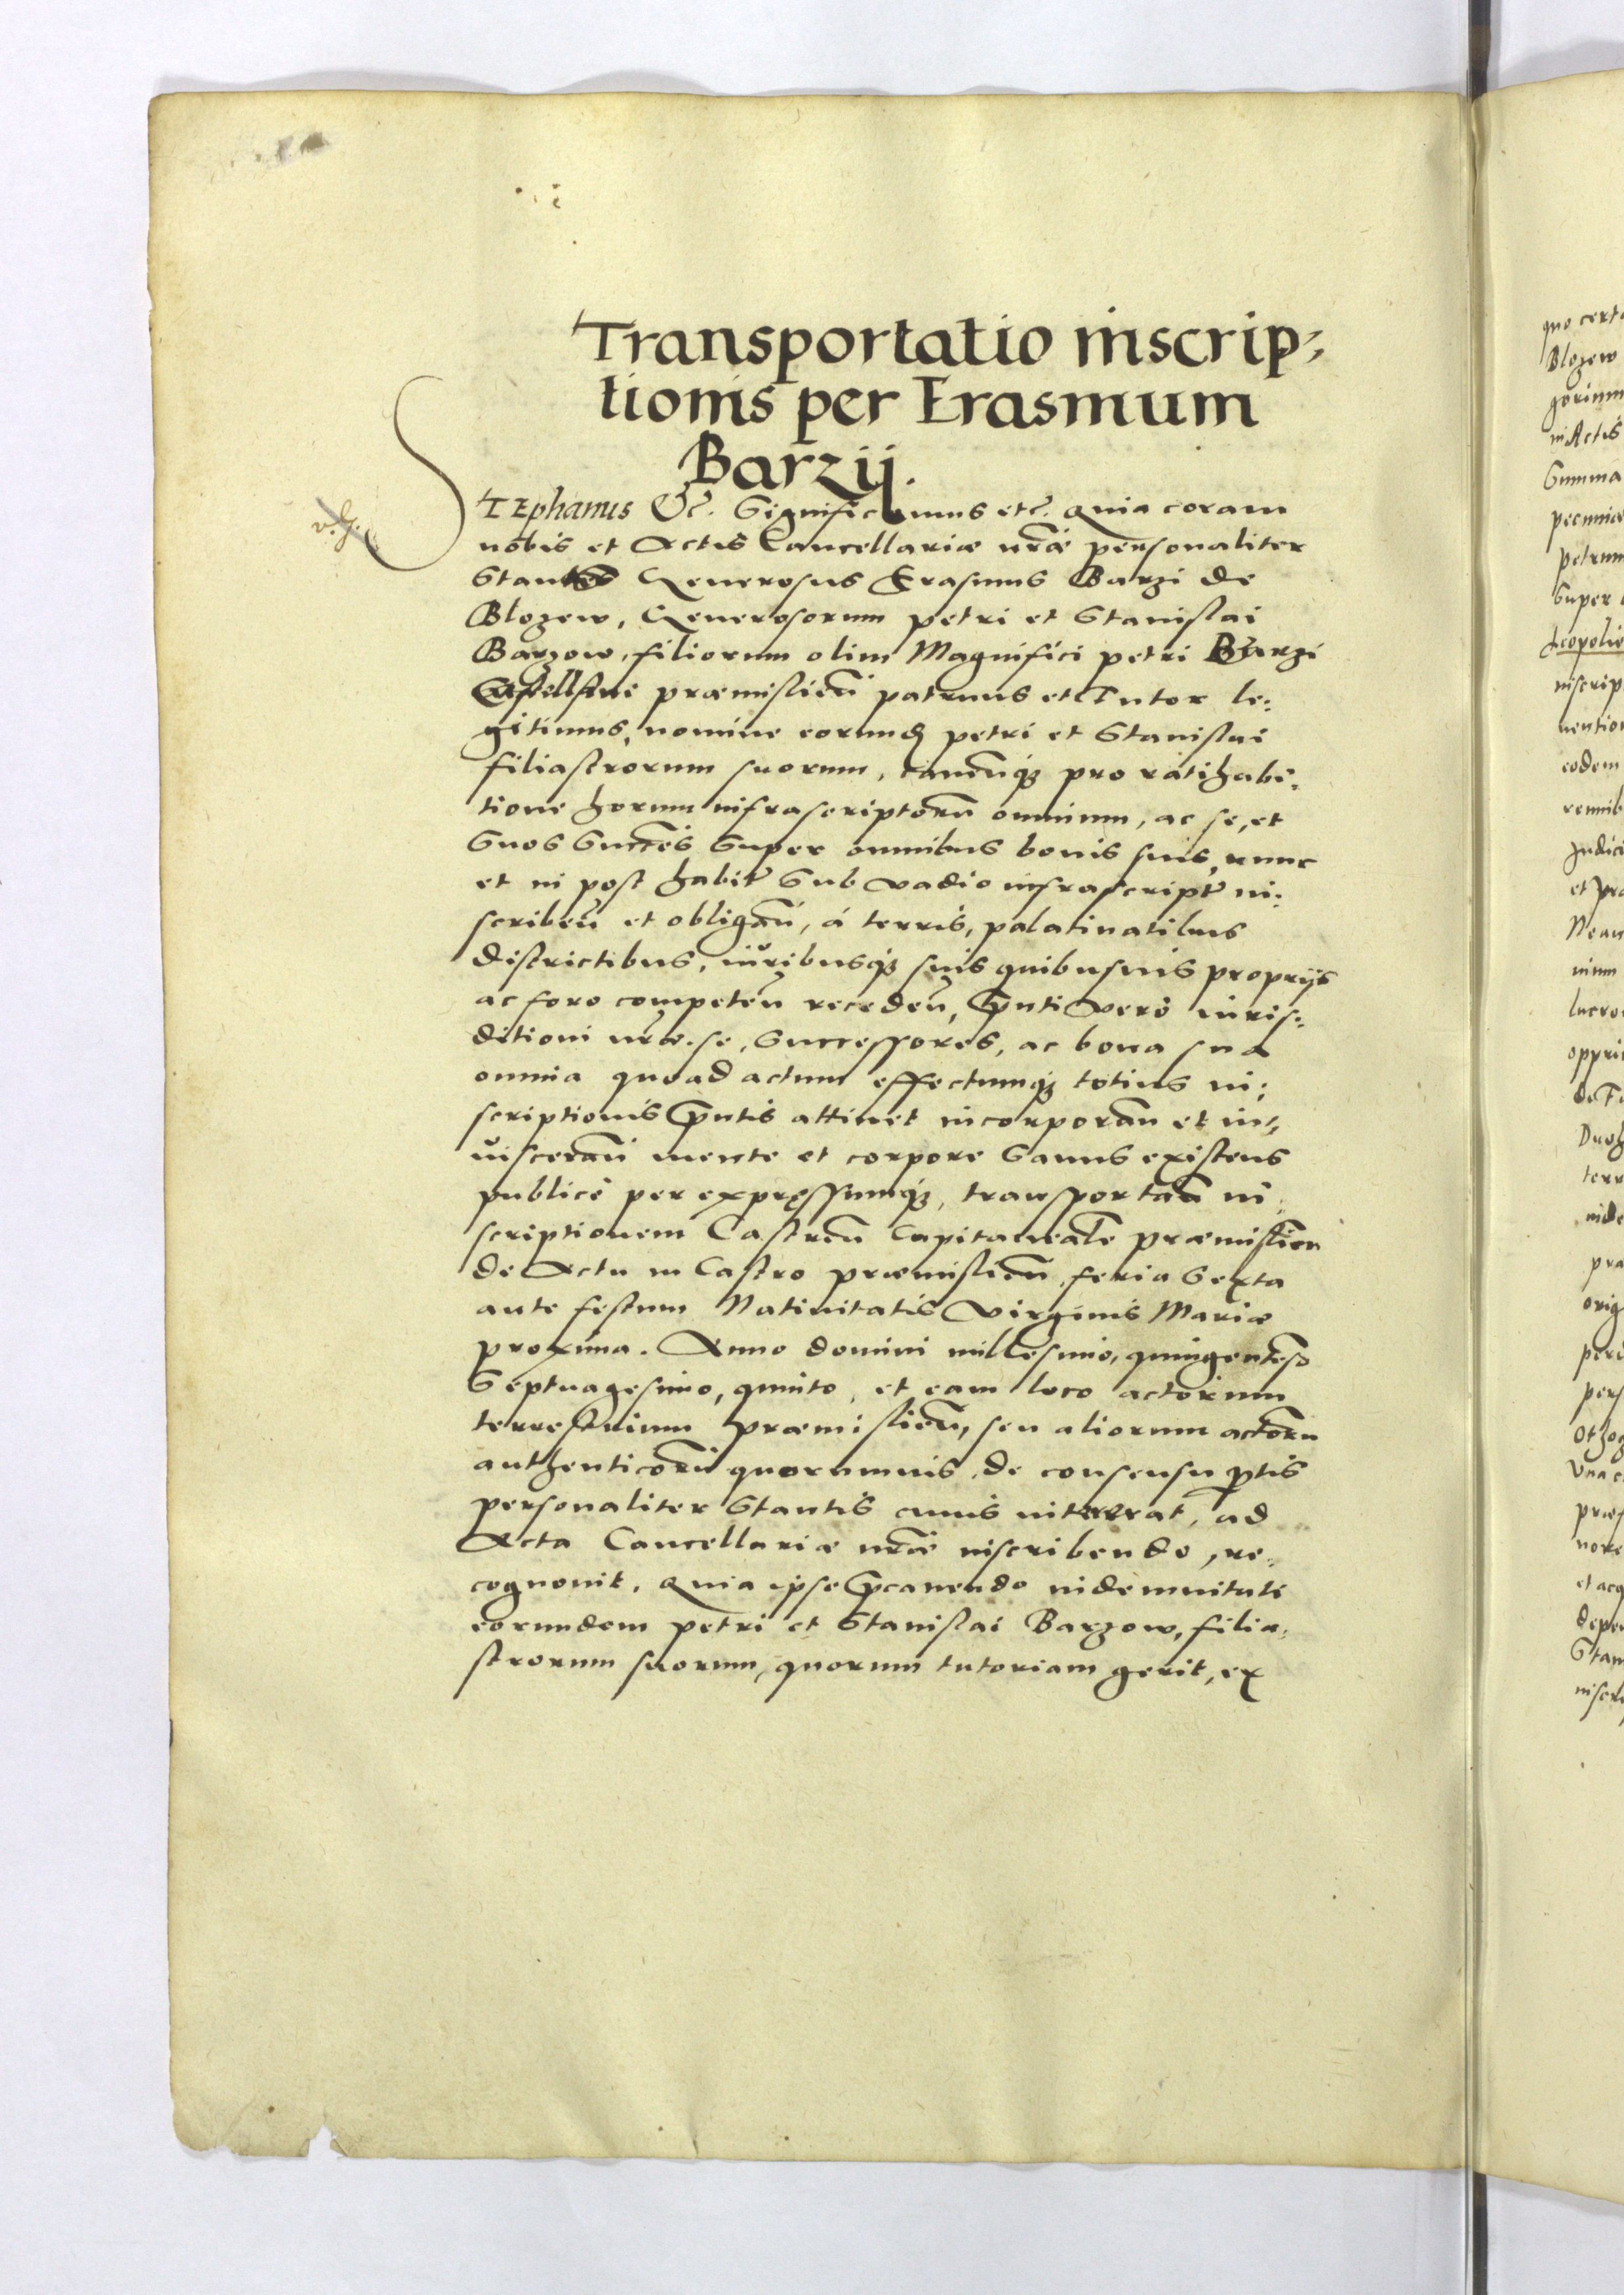 Transportatio inscrip⸗
tionis per Erasmum
Barzij.
STEphanus &c. Significamus etc. Quia coram
nobis et Actis Cancellariæ nr̃æ personaliter
Stans Generosus Erasmus Barzi de
Blozew, Generosorum petri et Stanislai
Barzow, filiorum olim Magnifici petri Barzi
Castellani præmislien̄ patruus et Tutor le:
gitimus, nomine eorund petri et Stanislai
filiastrorum suorum, cauen̄q; pro ratihabi:
tione horum infrascriptorū omnium, ac se, et
Suos Succes̄ Super omnibus bonis suis, nunc
et in post habit̄ Sub vadio infrascript̄ in:
scriben̄ et obligan̄, á terris, palatinatibus
districtibus, iuribusq; suis quibusuis proprijs
ac foro competen̄ receden̄, p̄nti verò iuris:
ditioni nr̃æ. se, Successores, ac bona sua
omnia quoad actum effectumq; totius in:
scriptionis p̄ntis attinet incorporan̄ et in:
visceran̄ mente et corpore Sanus existens
publicè per expręssumq;, transportan̄ in:
scriptionem Castren̄ Capitanealē præmislien
de Actu in Castro præmislien̄ feria Sexta
ante festum Natiuitatis Virginis Mariæ
proxima. Anno domini millesimo, quingentesō
Septuagesimo, quinto, et eam loco actorum
terrestrium præmislien̄, seu aliorum actorū
authenticorū quorumuis, de consensu p̄tis
personaliter Stantis cuius intererat, ad
Acta Cancellariæ nr̃æ inscribendo, re:
cognouit. Quia ipse p̄cauendo indemnitati
eorundem petri et Stanislai Barzow, filia:
strorum suorum, quorum tutoriam gerit, ex
quo certa
Blozew
in Actis
Summa
petrum
Super
Leopolie
inscrip
eodem
et pra
lucro
terr
pra
orig
pers
et acq